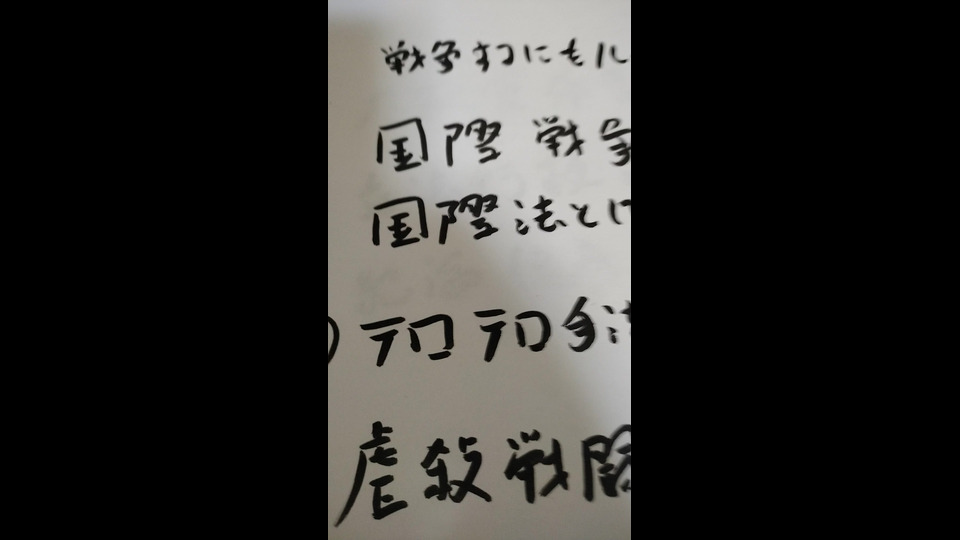 戦争するにもル
国際 戦争
国際法とは
) テロ テロ手法
虐殺戦闘